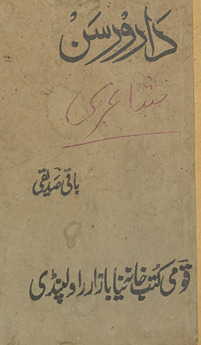 دار و رسن
شاعری
باقی صدیقی
قومی کتب خانہ نیا بازار راولپنڈی